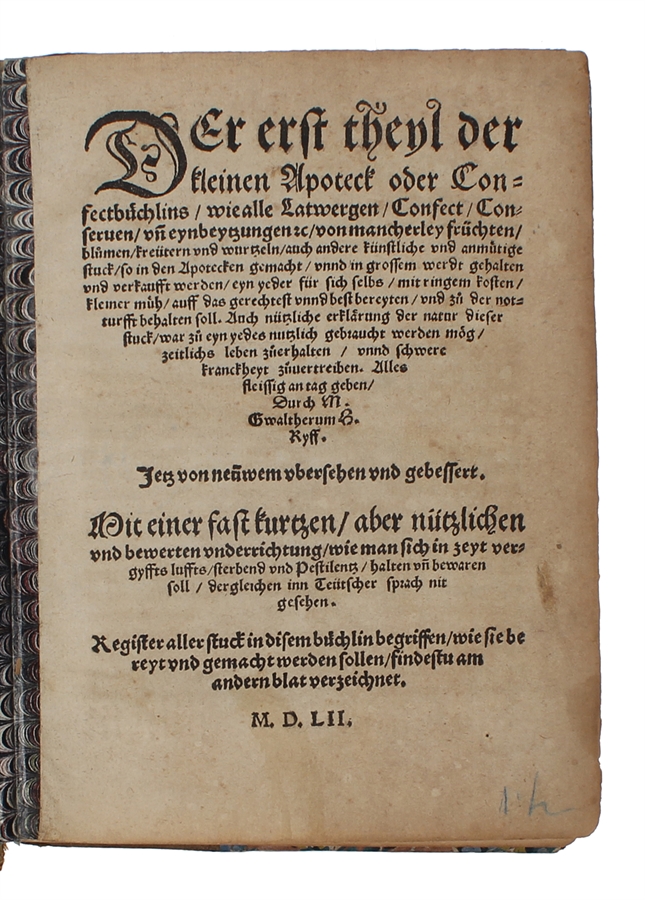 DEr erst theyl der
kleinen Apoteck oder Con=
fectbüchlins / wie alle Latwergen / Confect / Con=
seruen / vñ eynbeytzungen ⁊c / von mancherley früchten /
blůmen / kreütern vnd wurtzeln / auch andere künstliche vnd anmůtige
stuck / so in den Apotecken gemacht / vnnd in grossem werdt gehalten
vnd verkaufft werden / eyn yeder für sich selbs / mit ringem kosten /
kleiner müh / auff das gerechtest vnnd best bereyten / vnd zů der not=
turfft behalten soll. Auch nützliche erklärung der natur dieser
stuck / war zů eyn yedes nutzlich gebraucht werden mög /
zeitlichs leben zůerhalten / vnnd schwere
kranckheyt zůuertreiben. Alles
fleissig an tag geben /
Durch M.
Gwaltherum H.
Ryff.
Jetz von neüwem vbersehen vnd gebessert.
Mit einer fast kurtzen / aber nützlichen
vnd bewerten vnderrichtung / wie man sich in zeyt ver=
gyffts luffts / sterbend vnd Pestilentz / halten vñ bewaren
soll / dergleichen inn Teütscher sprach nit
gesehen.
Register aller stuck in disem büchlin begriffen / wie sie be
reyt vnd gemacht werden sollen / findestu am
andern blat verzeichnet.
M. D. LII.